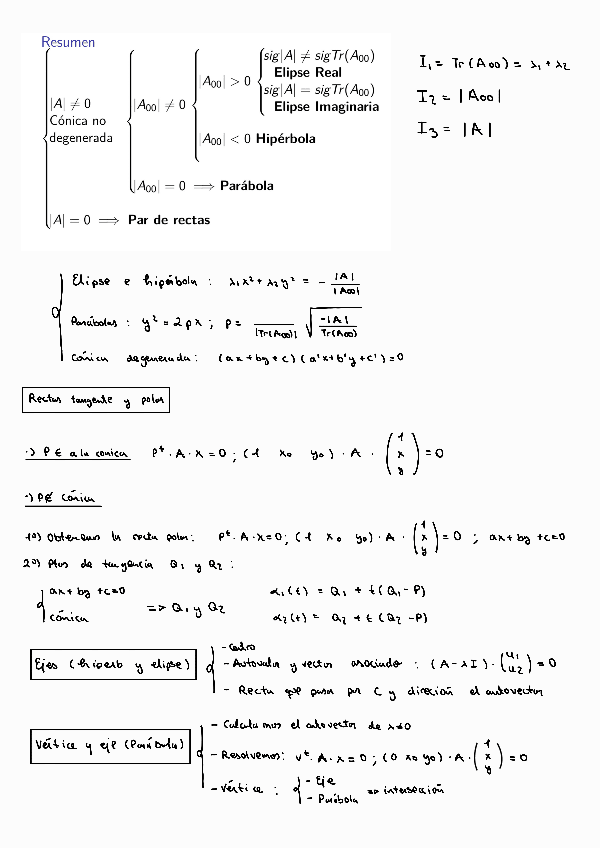 Resumen
|A| ≠ 0
Cónica no
degenerada
|A₀₀| ≠ 0
|A₀₀| > 0
sig|A| ≠ sigTr(A₀₀)
Elipse Real
sig|A| = sigTr(A₀₀)
Elipse Imaginaria
|A₀₀| < 0 Hipérbola
|A₀₀| = 0 ⟹ Parábola
|A| = 0 ⟹ Par de rectas
I₁ = Tr(A₀₀) = λ₁ + λ₂
I₂ = |A₀₀|
I₃ = |A|
Elipse e hipérbola : λ₁x² + λ₂y² = - |A| / |A₀₀|
Parábolas : y² = 2px ; p = 1/|Tr(A₀₀)| √(-|A| / Tr(A₀₀))
Cónica degenerada : (ax + by + c)(a'x + b'y + c') = 0
Rectas tangente y polar
·) P ∈ a la conica Pᵗ · A · x = 0 ; (1 x₀ y₀) · A · (1 x y) = 0
·) P ∉ Cónica
1º) Obtenemos la recta polar : Pᵗ · A · x = 0 ; (1 x₀ y₀) · A · (1 x y) = 0 ; ax + by + c = 0
2º) Ptos de tangencia Q₁ y Q₂ :
ax + by + c = 0
cónica
=> Q₁ y Q₂
α₁(t) = Q₁ + t(Q₁ - P)
α₂(t) = Q₂ + t(Q₂ - P)
Ejes (hiperb y elipse)
- Centro
- Autovalor y vector asociado : (A - λI) · (u₁ u₂) = 0
- Recta que pasa por C y dirección el autovector
Vértice y eje (Parábola)
- Calculamos el autovector de λ≠0
- Resolvemos : vᵗ · A · x = 0 ; (0 x₀ y₀) · A · (1 x y) = 0
- Vértice : - Eje
- Parábola => intersección